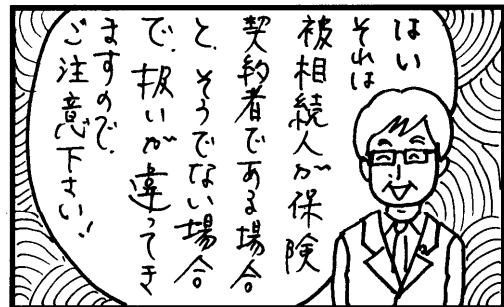 はい
それは
被相続人が保険
契約者である場合
と、そうでない場合
で、扱いが違ってき
ますので、
ご注意下さい！